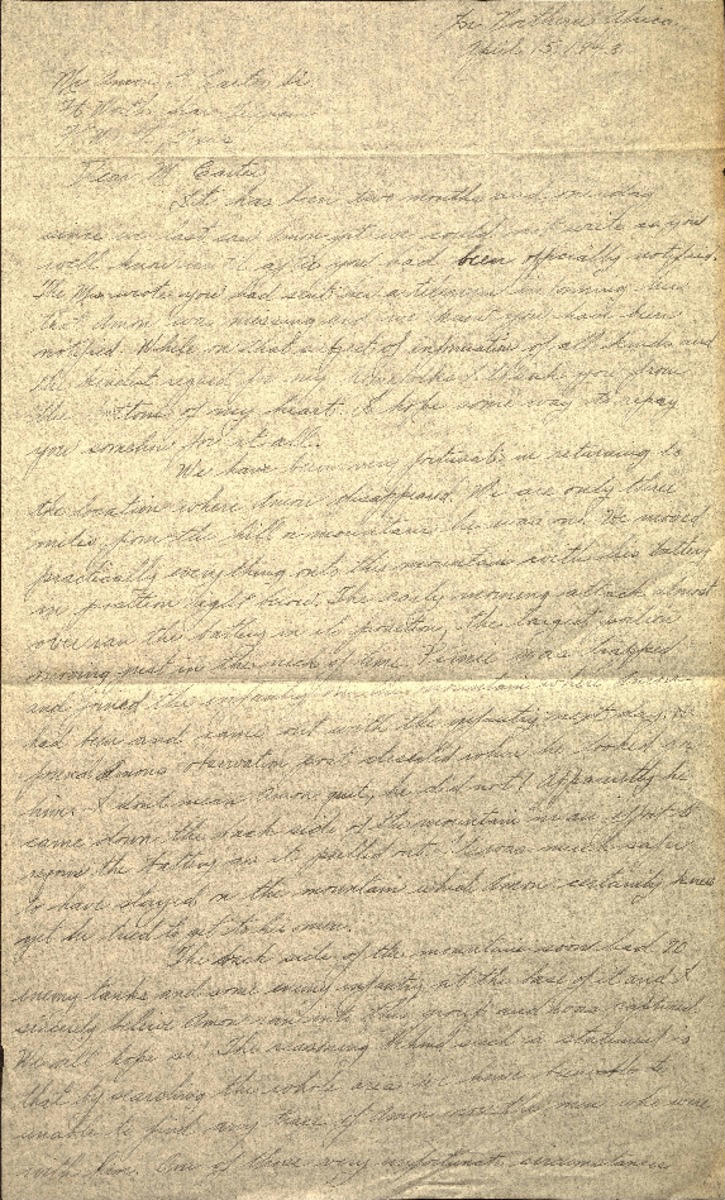 In Northern Africa
April 15, 1943
Mr Amon G Carter Sr
Ft Worth Star Telegram
Ft Worth, Texas
Dear Mr Carter
It has been two months and one day
since we last saw Amon yet we could not write as you
well know until after you had been officially notified.
The Mrs wrote you had sent her a telegram
that Amon was missing and we knew you had been
notified. While on that subject of information of all kinds and
the kindest regard for my homefolks I thank you from
the bottom of my heart. I hope some way to repay
you somehow for it all.
We have been very fortunate in returning to
the location where Amon disappeared. We are only three
miles from the hill or mountain he was on. We moved
practically everything onto this mountain with his battery
in position right below. The early morning attack almost
over ran the battery in its position, the largest portion
moving just in the nick of time. was trapped
and joined the infantry on the mountain where Amon
had been and came out with the infantry next day. He
found Amons observation post deserted when he looked for
him. I don't mean Amon quit, he did not! Apparently he
came down the back side of the mountain in an effort to
rejoin the battery as it pulled out. It was much safer
to have stayed on the mountain which Amon certainly knew
yet he tried to get to his men.
The back side of the mountain soon had 20
enemy tanks and some enemy infantry at the base of it and I
sincerely believe Amon ran into this group and was captured.
We will hope so. The reasoning behind such a statement is
that by searching the whole area we have been
unable to find any trace of Amon nor the men who were
with him. One of those very unfortunate circumstances